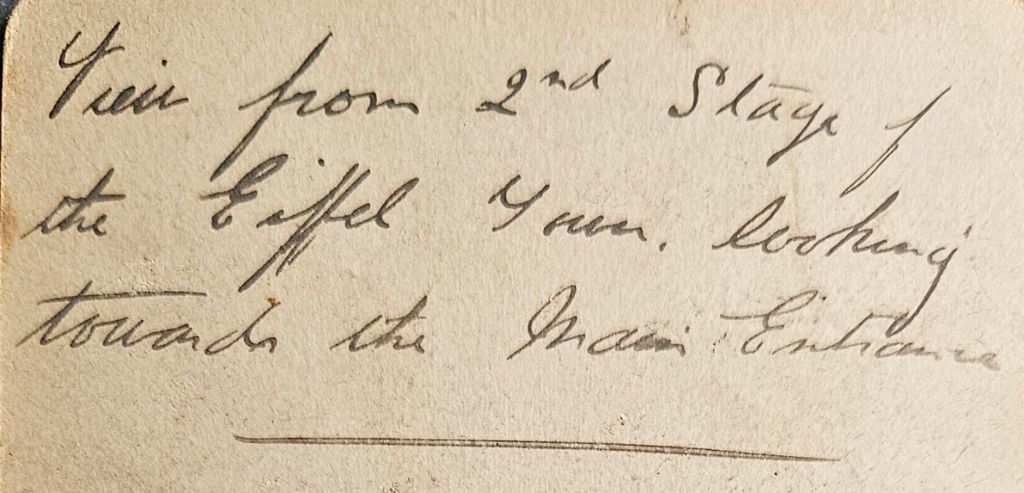 View from 2nd Stage of
the Eiffel Tower, looking
towards the Main Entrance